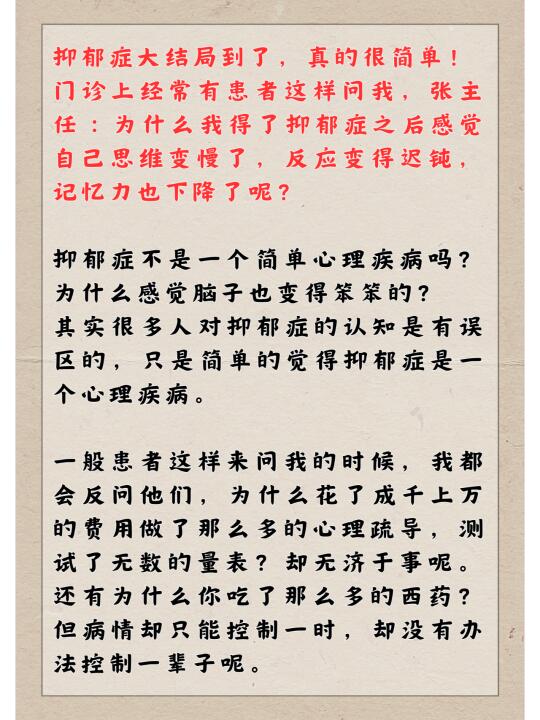 抑郁症大结局到了，真的很简单！
门诊上经常有患者这样问我，张主
任：为什么我得了抑郁症之后感觉
自己思维变慢了，反应变得迟钝，
记忆力也下降了呢？
抑郁症不是一个简单心理疾病吗？
为什么感觉脑子也变得笨笨的？
其实很多人对抑郁症的认知是有误
区的，只是简单的觉得抑郁症是一
个心理疾病。
一般患者这样来问我的时候，我都
会反问他们，为什么花了成千上万
的费用做了那么多的心理疏导，测
试了无数的量表？却无济于事呢。
还有为什么你吃了那么多的西药？
但病情却只能控制一时，却没有办
法控制一辈子呢。